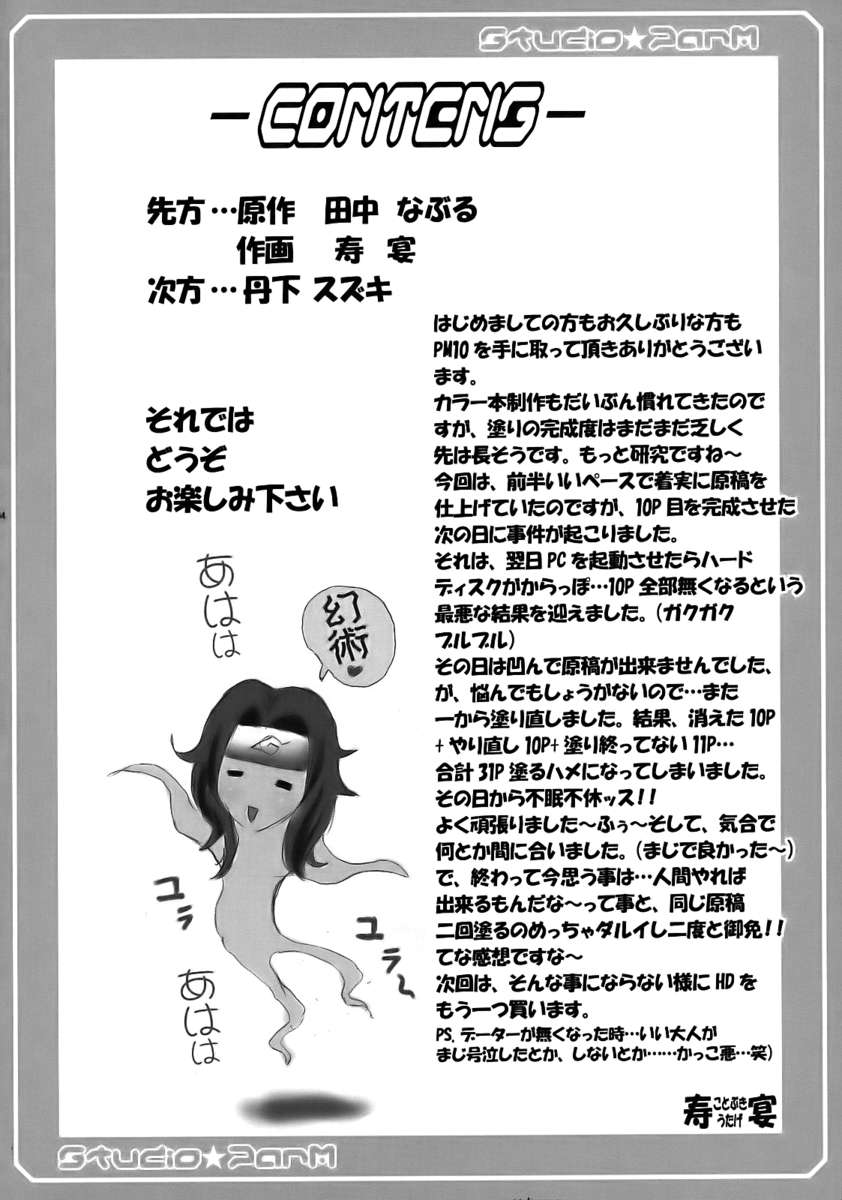 Studio★PanM
-CONTENS-
先方…原作 田中 なぶる
作画 寿 宴
次方…丹下 スズキ
それでは
どうぞ
お楽しみ下さい
はじめましての方もお久しぶりな方も
PM10を手に取って頂きありがとうござい
ます。
カラー本制作もだいぶん慣れてきたので
すが、塗りの完成度はまだまだ乏しく
先は長そうです。もっと研究ですね～
今回は、前半いいペースで着実に原稿を
仕上げていたのですが、10P目を完成させた
次の日に事件が起こりました。
それは、翌日PCを起動させたらハード
ディスクがからっぽ…10P全部無くなるという
最悪な結果を迎えました。(ガクガク
ブルブル)
その日は凹んで原稿が出来ませんでした、
が、悩んでもしょうがないので…また
一から塗り直しました。結果、消えた10P
+やり直し10P+塗り終ってない11P…
合計31P塗るハメになってしまいました。
その日から不眠不休ッス!!
よく頑張りました～ふぅ～そして、気合で
何とか間に合いました。(まじで良かった～)
で、終わって今思う事は…人間やれば
出来るもんだな～って事と、同じ原稿
二回塗るのめっちゃダルイし二度と御免!!
てな感想ですな～
次回は、そんな事にならない様にHDを
もう一つ買います。
PS.データーが無くなった時…いい大人が
まじ号泣したとか、しないとか……かっこ悪…笑)
寿ことぶき宴うたげ
あはは
幻術♥
ユラ
ユラ～
あはは
Studio★PanM